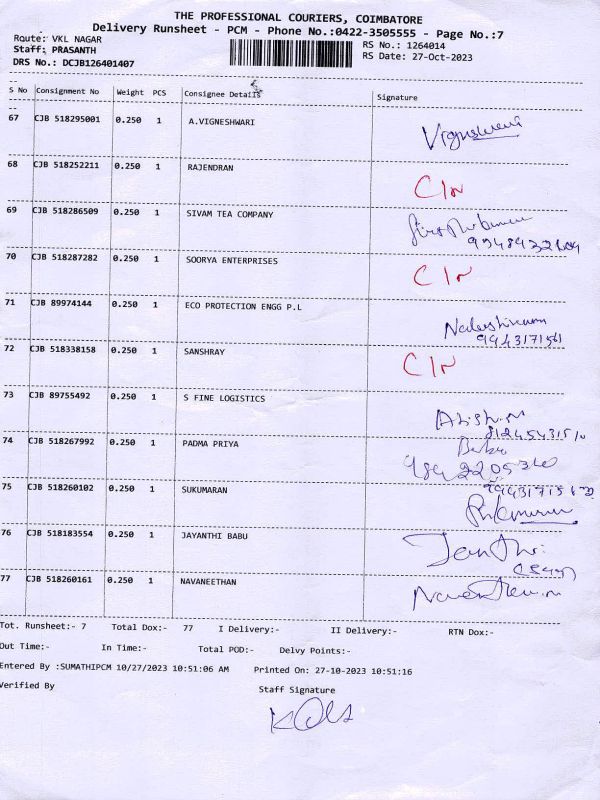 THE PROFESSIONAL COURIERS, COIMBATORE
Delivery Runsheet - PCM - Phone No.:0422-3505555 - Page No.:7
Route: VKL NAGAR RS No.: 1264014
Staff: PRASANTH RS Date: 27-Oct-2023
DRS No.: DCJB126401407
S No Consignment No Weight PCS Consignee Details Signature
67 CJB 518295001 0.250 1 A.VIGNESHWARI
68 CJB 518252211 0.250 1 RAJENDRAN C/N
69 CJB 518286509 0.250 1 SIVAM TEA COMPANY
70 CJB 518287282 0.250 1 SOORYA ENTERPRISES C/N
71 CJB 89974144 0.250 1 ECO PROTECTION ENGG P.L
9943171561
72 CJB 518338158 0.250 1 SANSHRAY C/N
73 CJB 89755492 0.250 1 S FINE LOGISTICS
74 CJB 518267992 0.250 1 PADMA PRIYA
75 CJB 518260102 0.250 1 SUKUMARAN
76 CJB 518183554 0.250 1 JAYANTHI BABU
77 CJB 518260161 0.250 1 NAVANEETHAN
Tot. Runsheet:- 7 Total Dox:- 77 I Delivery:- II Delivery:- RTN Dox:-
Out Time:- In Time:- Total POD:- Delvy Points:-
Entered By :SUMATHIPCM 10/27/2023 10:51:06 AM Printed On: 27-10-2023 10:51:16
Verified By Staff Signature